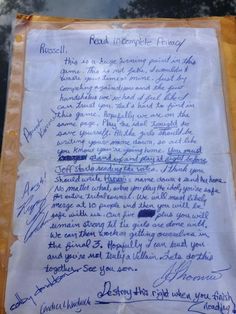 Read in Complete Privacy
Russell,
This is a huge turning point in this
game. This is not fake, I wouldn't
waste your time or mine. Just by
conversing again and the first
handshake we had I feel like I
can trust you. that's hard to find in
this game. Hopefully we are on the
same page. Play the Idol Tonight to
save yourself. All the girls should be
writing your name down, so act like
you know your going home. You must
stand up and play it right before
Jeff starts reading the votes. I think you
should write name down and send her home.
No matter what, when you play the idol, you're safe
for entire tribal council. We will most likely
merge at 10 people and then you will be
safe with us. Our five plus you will
remain strong til the girls are done with.
We can then work on getting ourselves in
the final 3. Hopefully I can trust you
and you're not truly a Villain. Lets do this
together. See you soon.
JThomas
colby donaldson
Amanda Kimmel
Destroy this right when you finish
reading